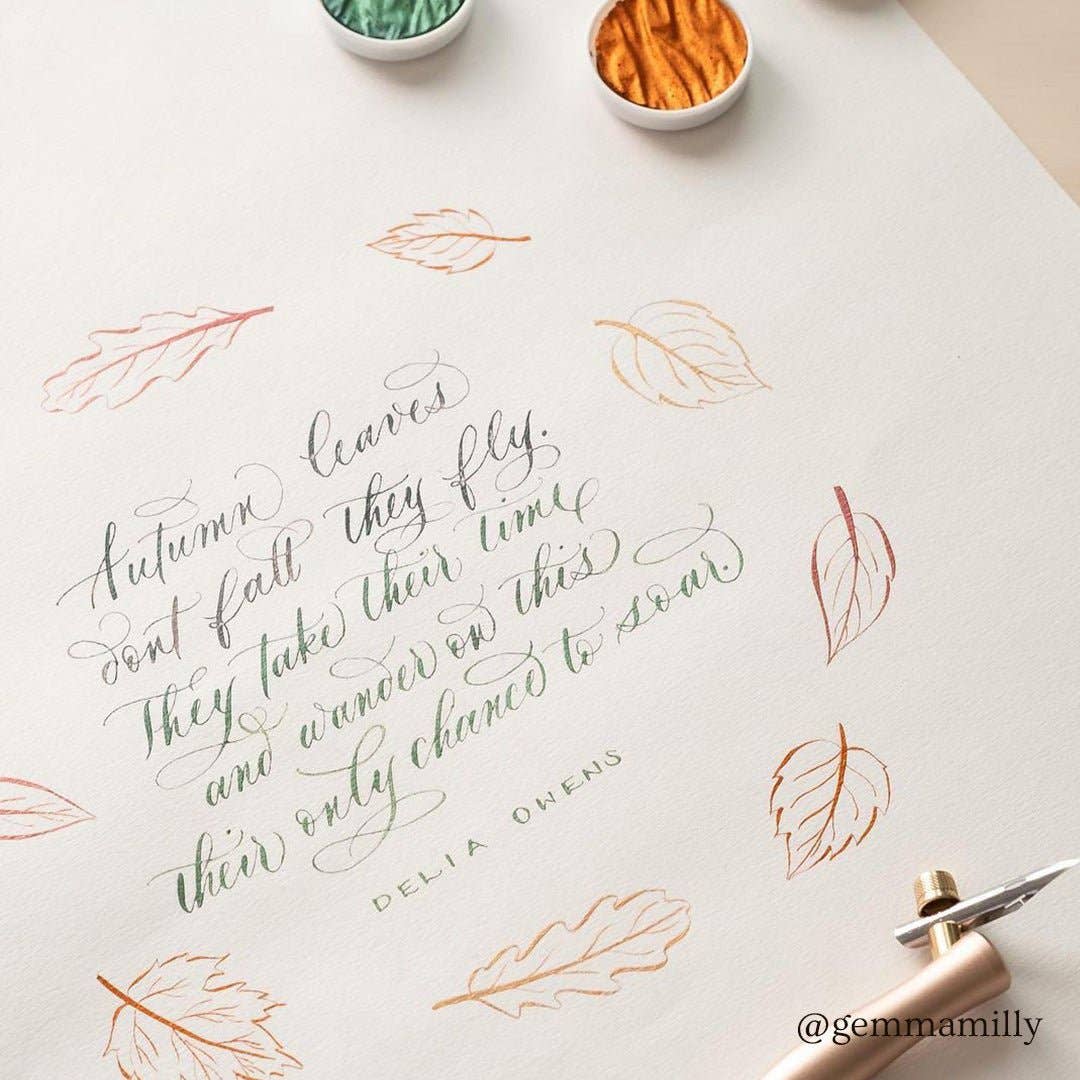 Autumn leaves
dont fall they fly.
They take their time
and wander on this
their only chance to soar.
DELIA OWENS
@gemmamilly